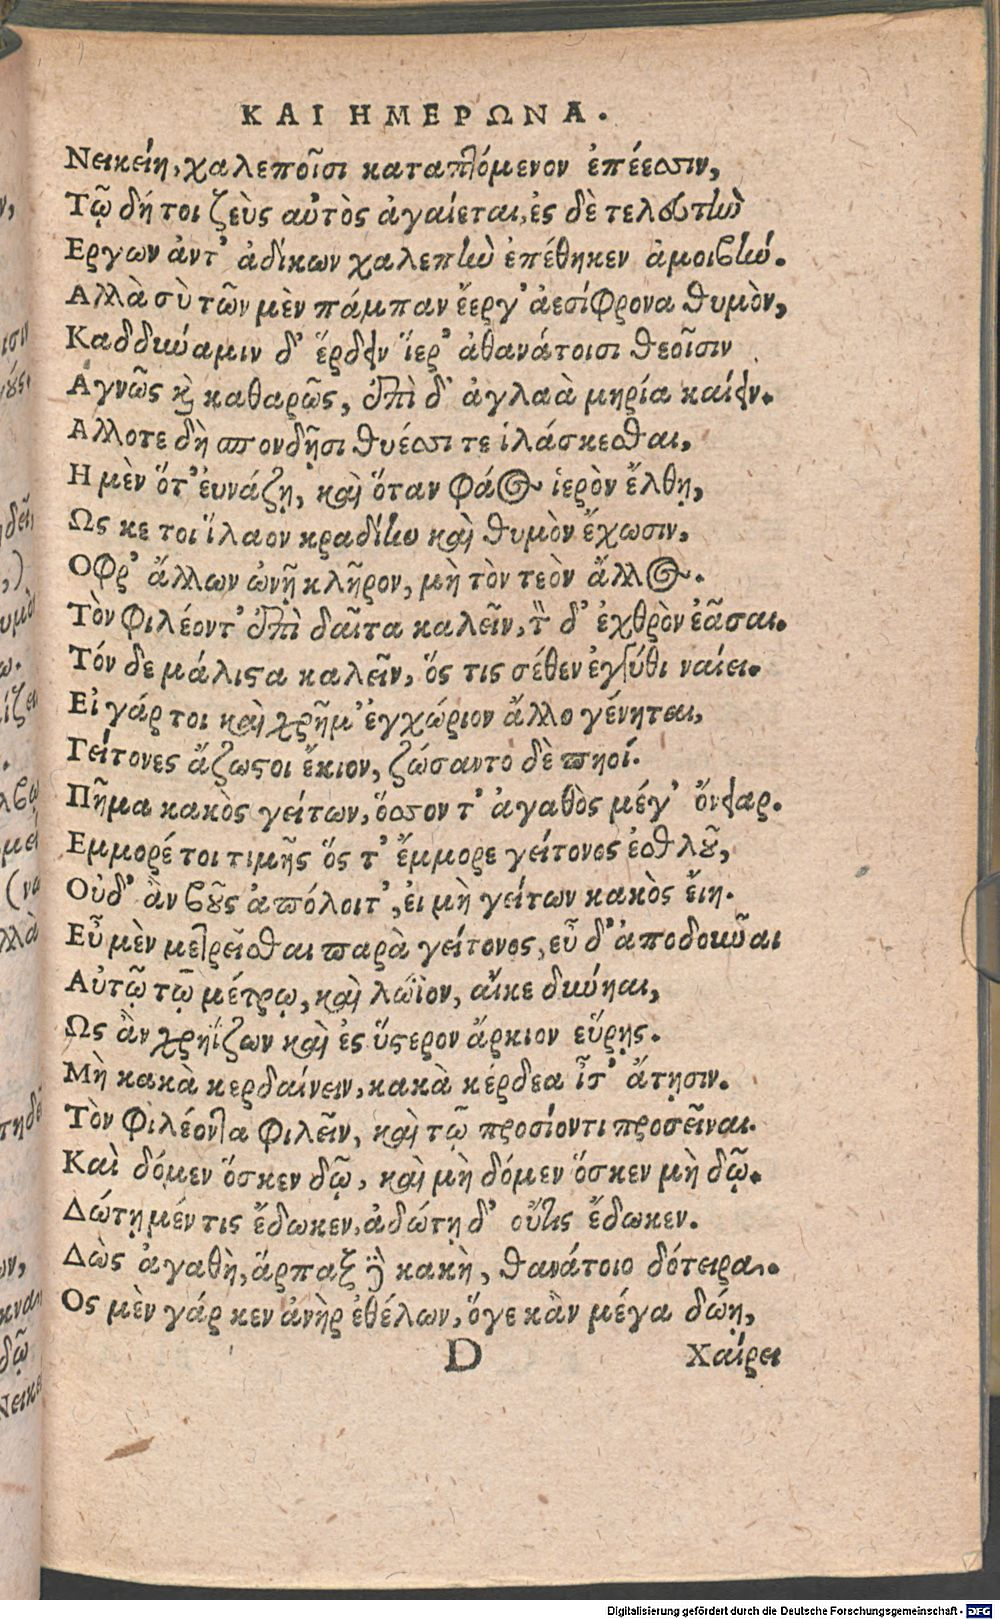 ΚΑΙ ΗΜΕΡΩΝ Α.
Νεικείη, χαλεποῖσι καταπτόμενον ἐπέεσσιν,
Τῷ δή τοι ζεὺς αὐτὸς ἀγαίεται, ἐς δὲ τελευτὴν
Εργων ἀντ' ἀδίκων χαλεπὴν ἐπέθηκεν ἀμοιβήν.
Αλλὰ σὺ τῶν μὲν πάμπαν ἔεργ' ἀεσίφρονα θυμὸν,
Καδδύναμιν δ' ἔρδειν ἵερ' ἀθανάτοισι θεοῖσιν
Αγνῶς καὶ καθαρῶς, ἐπὶ δ' ἀγλαὰ μηρία καίειν.
Αλλοτε δὴ σπονδῇσι θυέσσι τε ἱλάσκεσθαι,
Η μὲν ὅτ' ἐυνάζῃ, καὶ ὅταν φάος ἱερὸν ἔλθῃ,
Ως κε τοι ἵλαον κραδίην καὶ θυμὸν ἔχωσιν,
Οφρ' ἄλλων ὠνῇ κλῆρον, μὴ τὸν τεὸν ἄλλος.
Τὸν φιλέοντ' ἐπὶ δαῖτα καλεῖν, τὸν δ' ἐχθρὸν ἐᾶσαι.
Τόν δε μάλιστα καλεῖν, ὅς τις σέθεν ἐγγύθι ναίει.
Εἰ γάρ τοι καὶ χρῆμ' ἐγχώριον ἄλλο γένηται,
Γείτονες ἄζωστοι ἔκιον, ζώσαντο δὲ πηοί.
Πῆμα κακὸς γείτων, ὅσσον τ' ἀγαθὸς μέγ' ὄνειαρ.
Εμμορέ τοι τιμῆς ὅς τ' ἔμμορε γείτονος ἐσθλοῦ,
Οὐδ' ἂν βοῦς ἀπόλοιτ', ἐι μὴ γείτων κακὸς ἔιη.
Εὖ μὲν μετρεῖσθαι παρὰ γείτονος, εὖ δ' ἀποδοῦναι
Αὐτῷ τῷ μέτρῳ, καὶ λώϊον, αἴκε δύνηαι,
Ως ἂν χρηΐζων καὶ ἐς ὕστερον ἄρκιον εὕρῃς.
Μὴ κακὰ κερδαίνειν, κακὰ κέρδεα ἶσ' ἄτῃσιν.
Τὸν φιλέοντα φιλεῖν, καὶ τῷ προσίοντι προσεῖναι.
Καὶ δόμεν ὅσκεν δῷ, καὶ μὴ δόμεν ὅσκεν μὴ δῷ.
Δώτῃ μέν τις ἔδωκεν, ἀδώτῃ δ' οὔτις ἔδωκεν.
Δὼς ἀγαθὴ, ἅρπαξ δὲ κακὴ, θανάτοιο δότειρα.
Ος μὲν γάρ κεν ἀνὴρ ἐθέλων, ὅγε κἂν μέγα δώῃ,
D Χαίρει
Digitalisierung gefördert durch die Deutsche Forschungsgemeinschaft - DFG